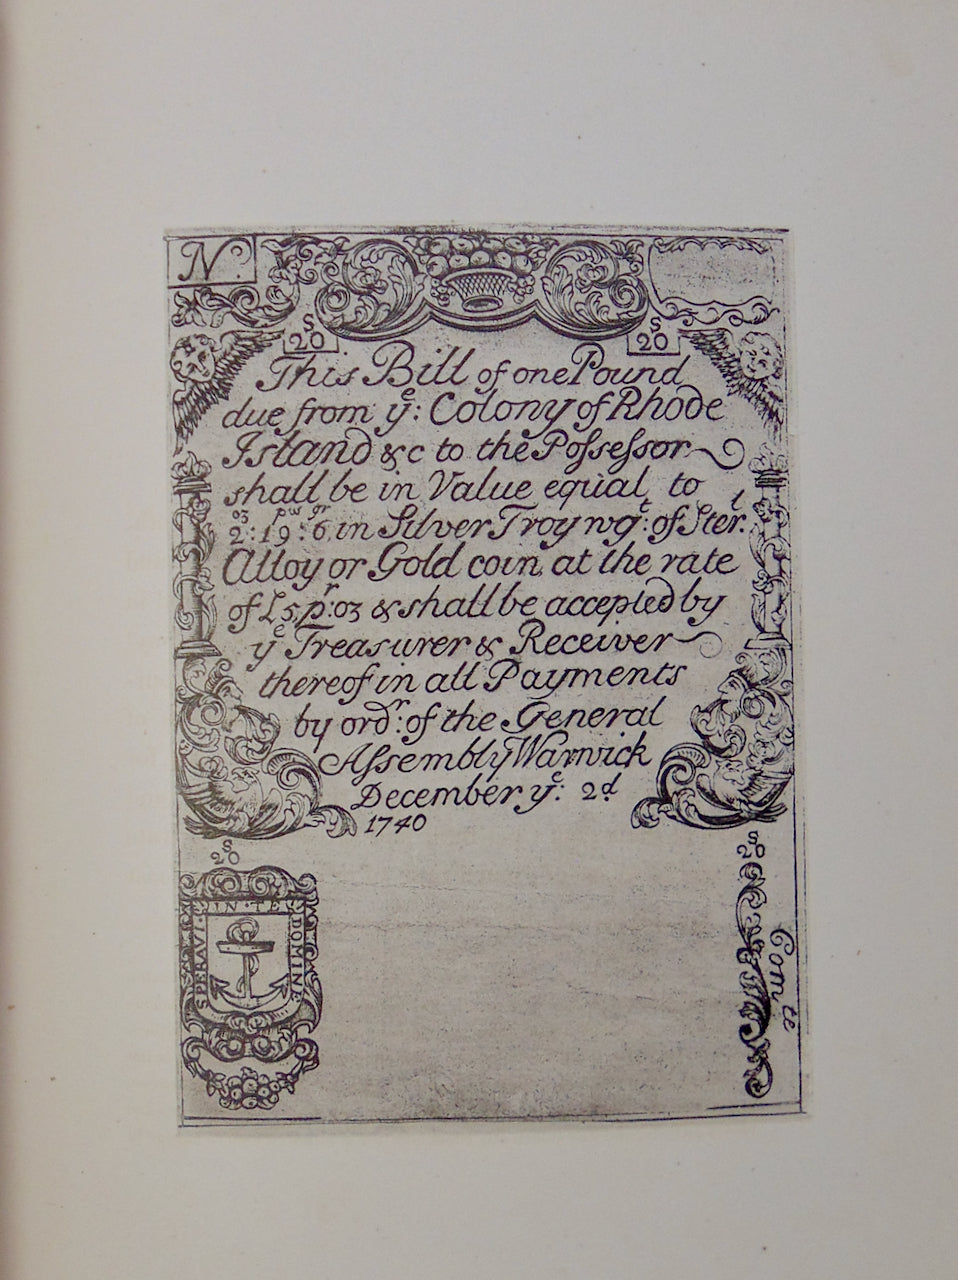 No.
20s 20s
This Bill of one Pound
due from ye: Colony of Rhode
Island &c to the Possessor
shall be in Value equal to
2oz: 19pw: 6gr in Silver Troy wgt: of Sterl.
Alloy or Gold coin at the rate
of £5 pr: oz & shall be accepted by
ye Treasurer & Receiver
thereof in all Payments
by ordr: of the General
Assembly Warwick
December ye: 2d
1740
20s 20s
SPERAVI IN TE DOMINE
Comtee